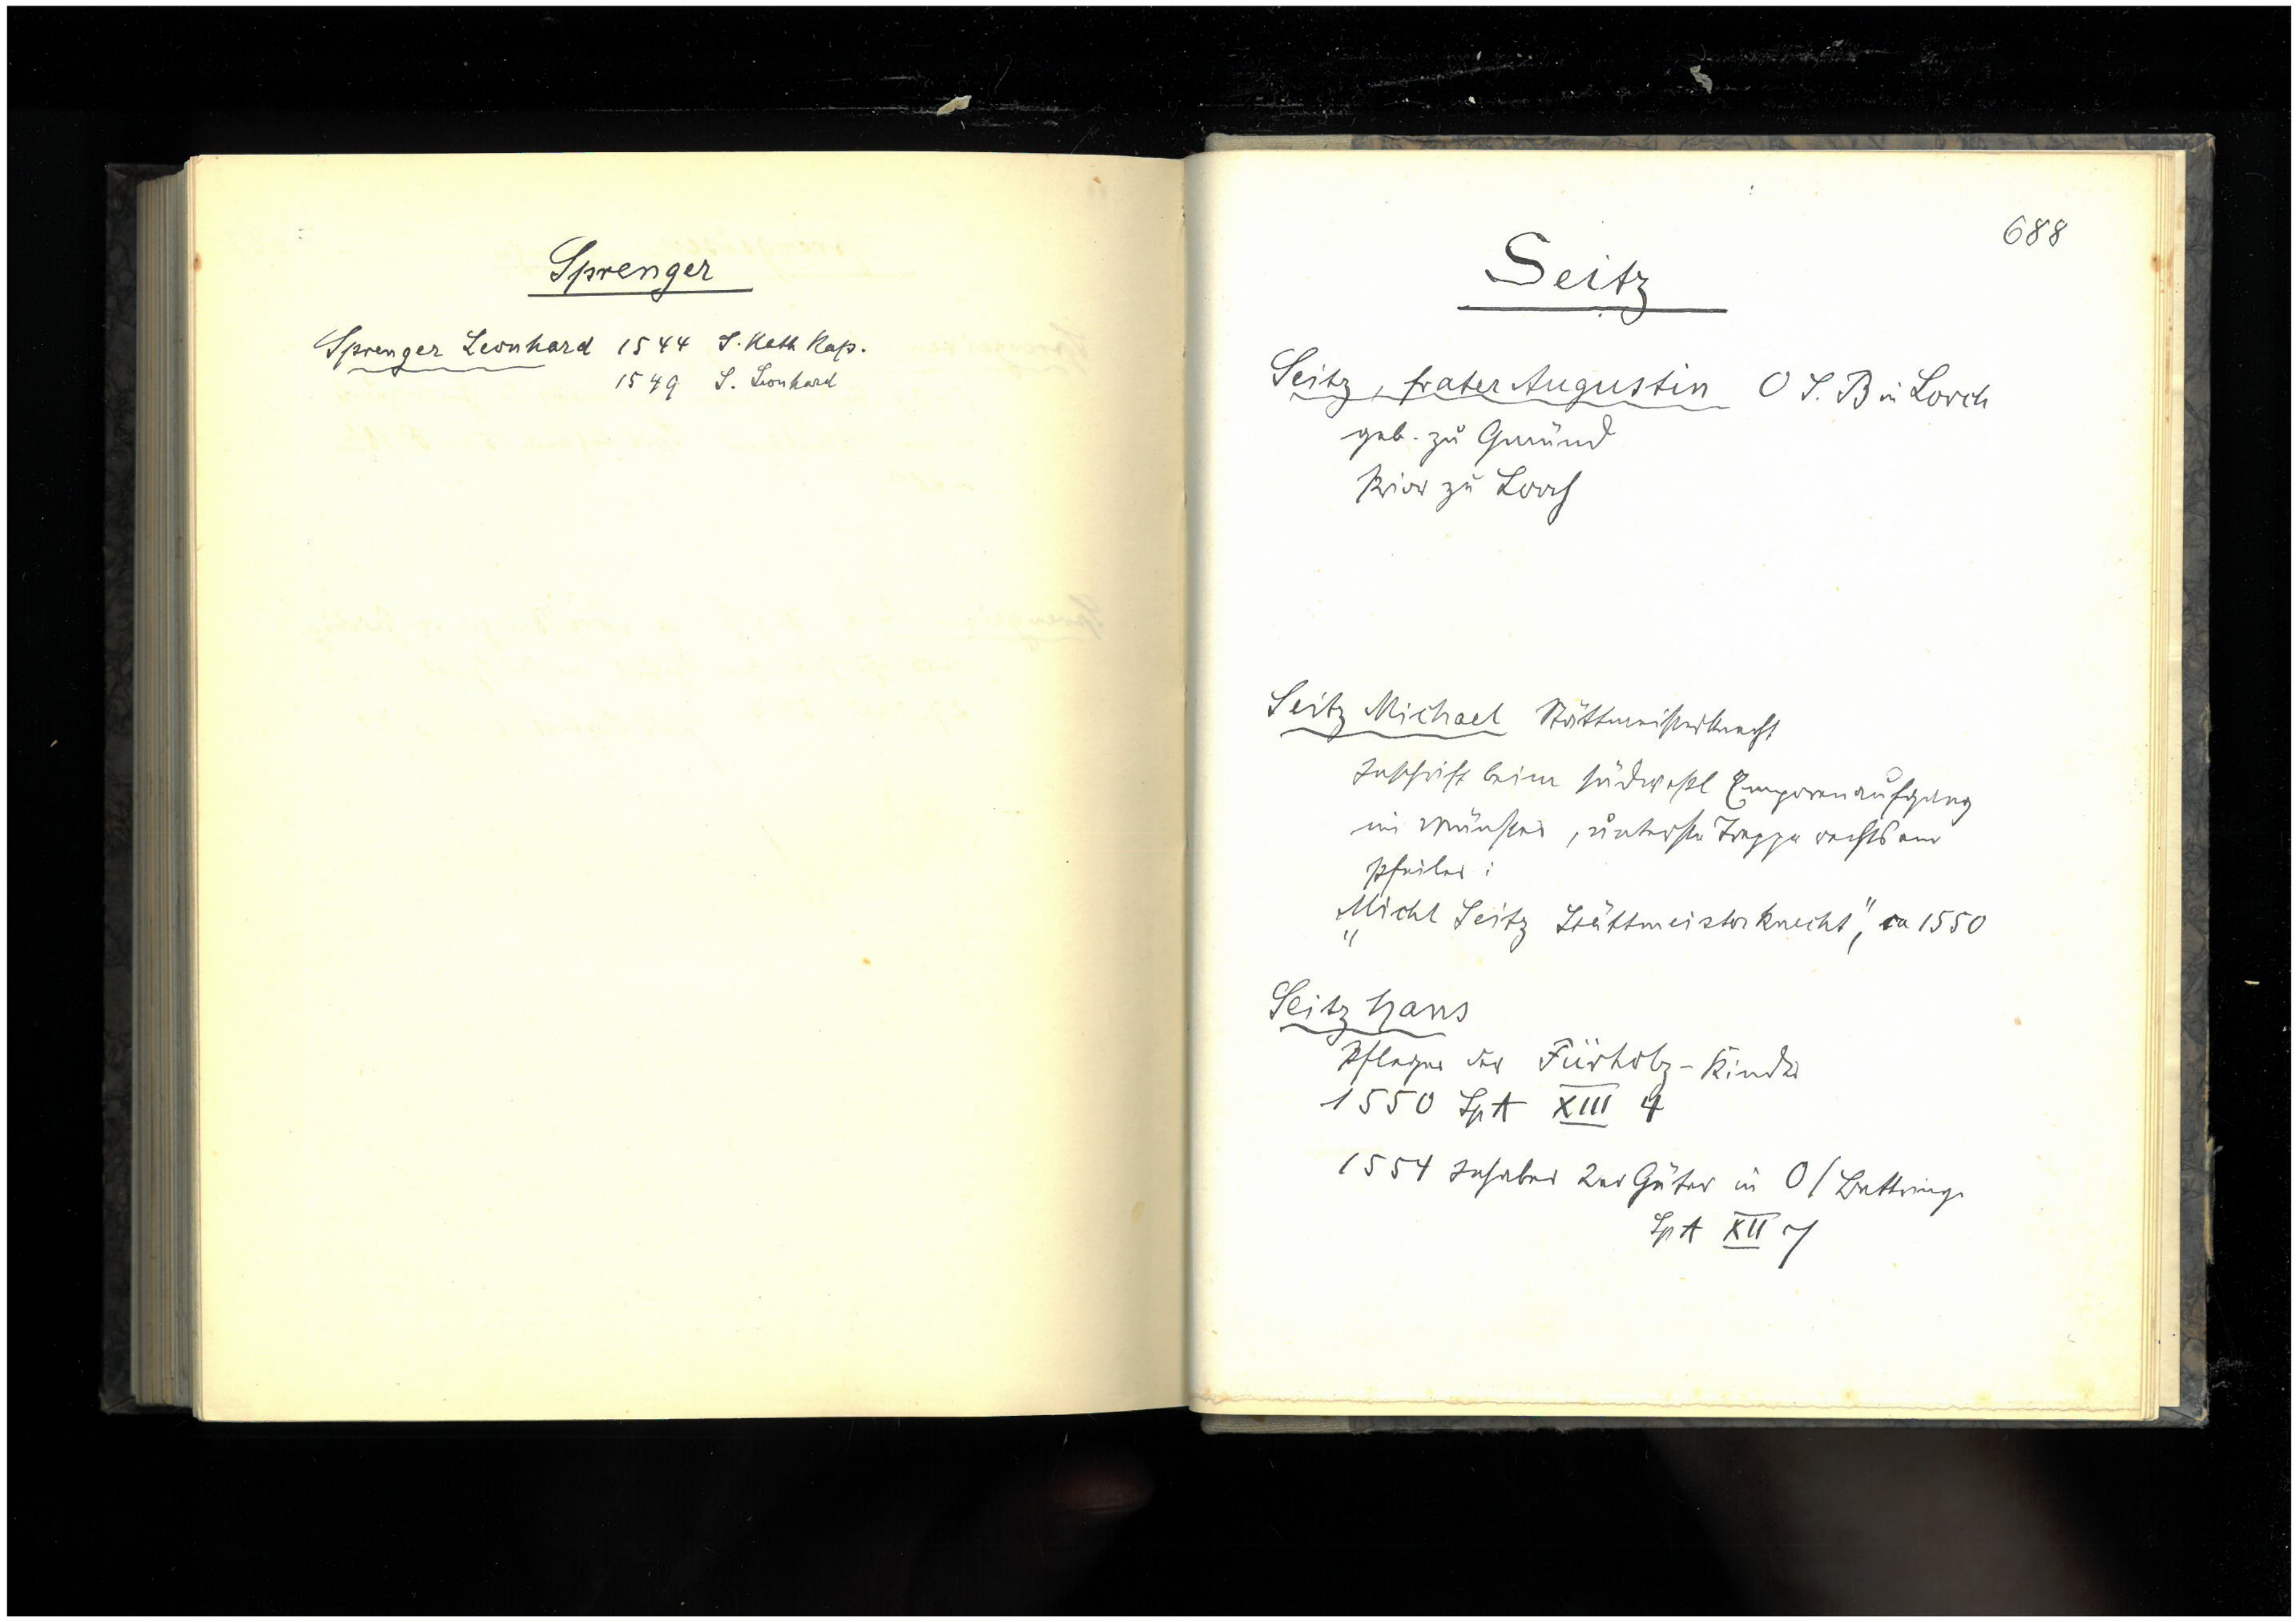 Sprenger
Sprenger Leonhard 1544 S. Kath Kap.
1549 S. Leonhard
688
Seitz
Seitz, frater Augustin O S. B in Lorch
geb. zu Gmünd
Prior zu Lorch
Seitz Michael Stättmeisterknecht
Inschrift beim südwestl Emporenaufgang
im Münster, unterste Treppe rechts am
Pfeiler:
"Michl Seitz Stättmeisterknecht", ca 1550
Seitz Hans
Pfleger der Fürholz-Kinder
1550 Sp A XIII 4
1554 Inhaber 2er Güter in O/Bettring.
Sp A XII 7